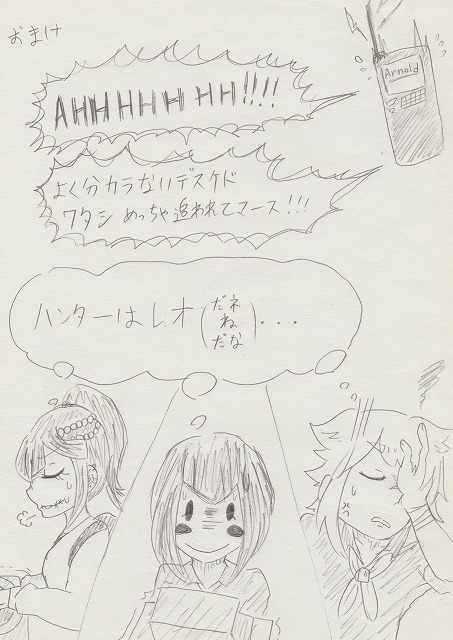 おまけ
Arnold
AHHHHHHH!!!!
よく分カラないデスケド
ワタシ めっちゃ追われてマース!!!
ハンターはレオ(だネ
ねね
だな)・・・